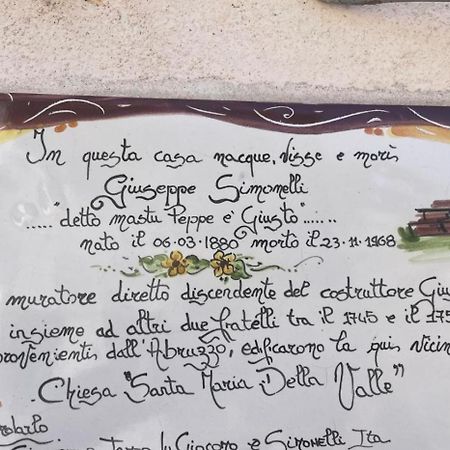 In questa casa nacque, visse e morì
Giuseppe Simonelli
....."detto mastu Peppe e' Giusto"......
nato il 06.03.1880 morto il 23.11.1968
muratore diretto discendente del costruttore Giu
insieme ad altri due fratelli tra il 1745 e il 175
provenienti dall'Abruzzo, edificarono la qui vicin
Chiesa "Santa Maria Della Valle"
Simonelli Ita